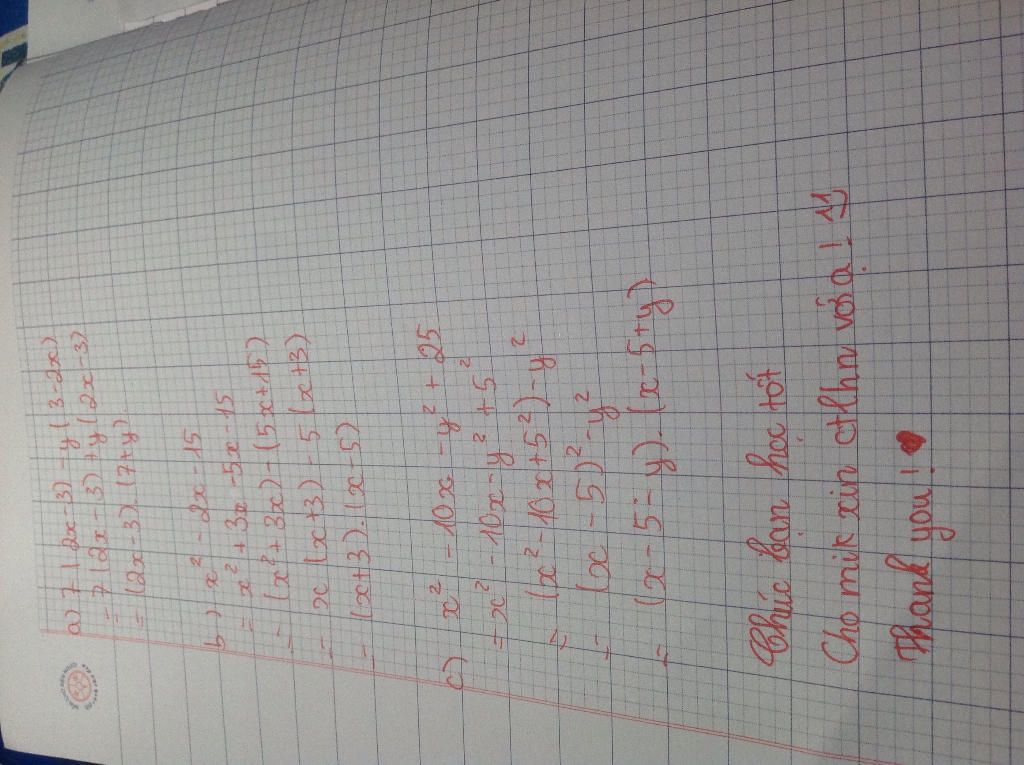 a) 7(2x-3)-y(3-2x)
= 7(2x-3)+y(2x-3)
= (2x-3).(7+y).
b) x² - 2x - 15
= x² + 3x - 5x - 15
= (x² + 3x) - (5x + 15)
= x (x+3) - 5 (x+3)
= (x+3).(x-5)
c) x² - 10x - y² + 25
= x² - 10x - y² + 5²
= (x² - 10x + 5²) - y²
= (x - 5)² - y²
= (x - 5 - y).(x - 5 + y)
Chúc bạn học tốt
Cho mik xin ctlhn với ạ!
Thank you!